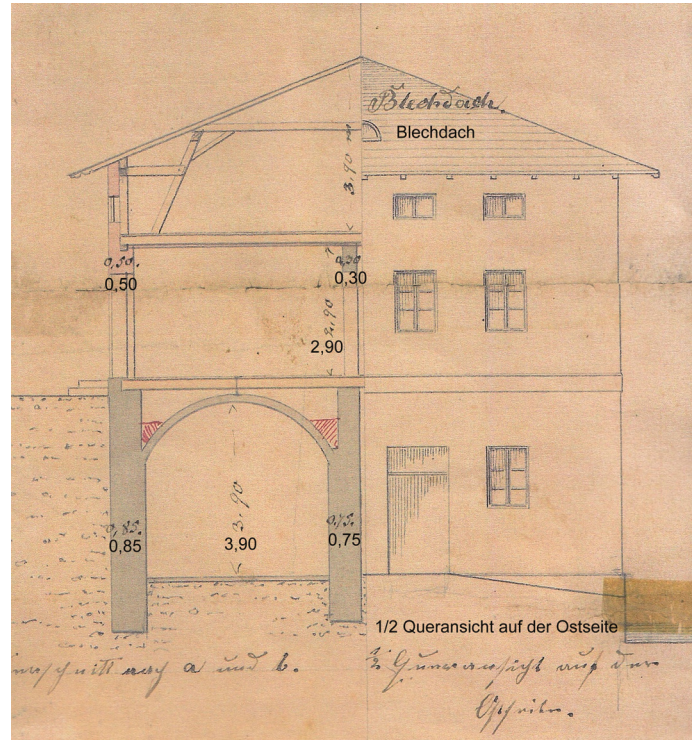 Blechdach.
Blechdach
3.90 m
0,50.
0,50
0,30
0,30
2,90
2,90
0,85.
0,85
3,90
3,90
0,75.
0,75
1/2 Queransicht auf der Ostseite
nach a und b.
1/2 Queransicht auf der
Ostseite.